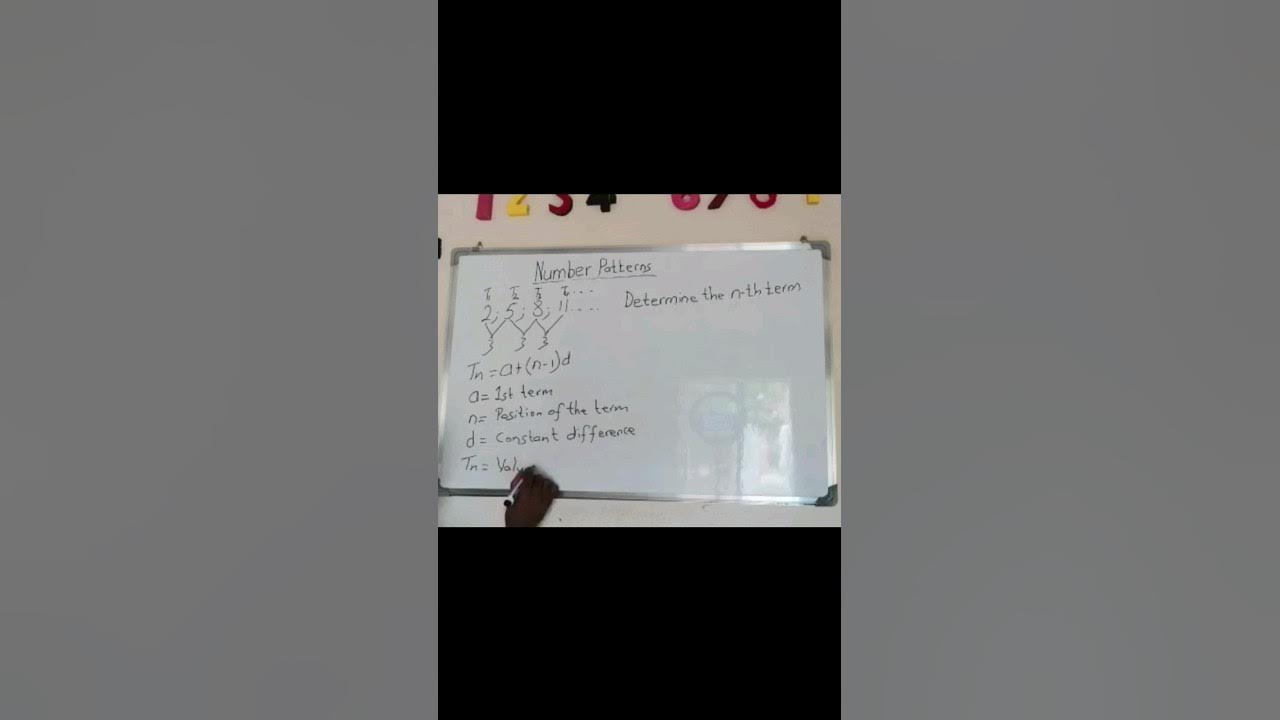 1 2 3 4 6 7 8
Number Patterns
T₁ T₂ T₃ T₄...
2; 5; 8; 11....
Determine the n-th term
3 3 3
Tn = a+(n-1)d
a = 1st term
n = Position of the term
d = Constant difference
Tn = Valu